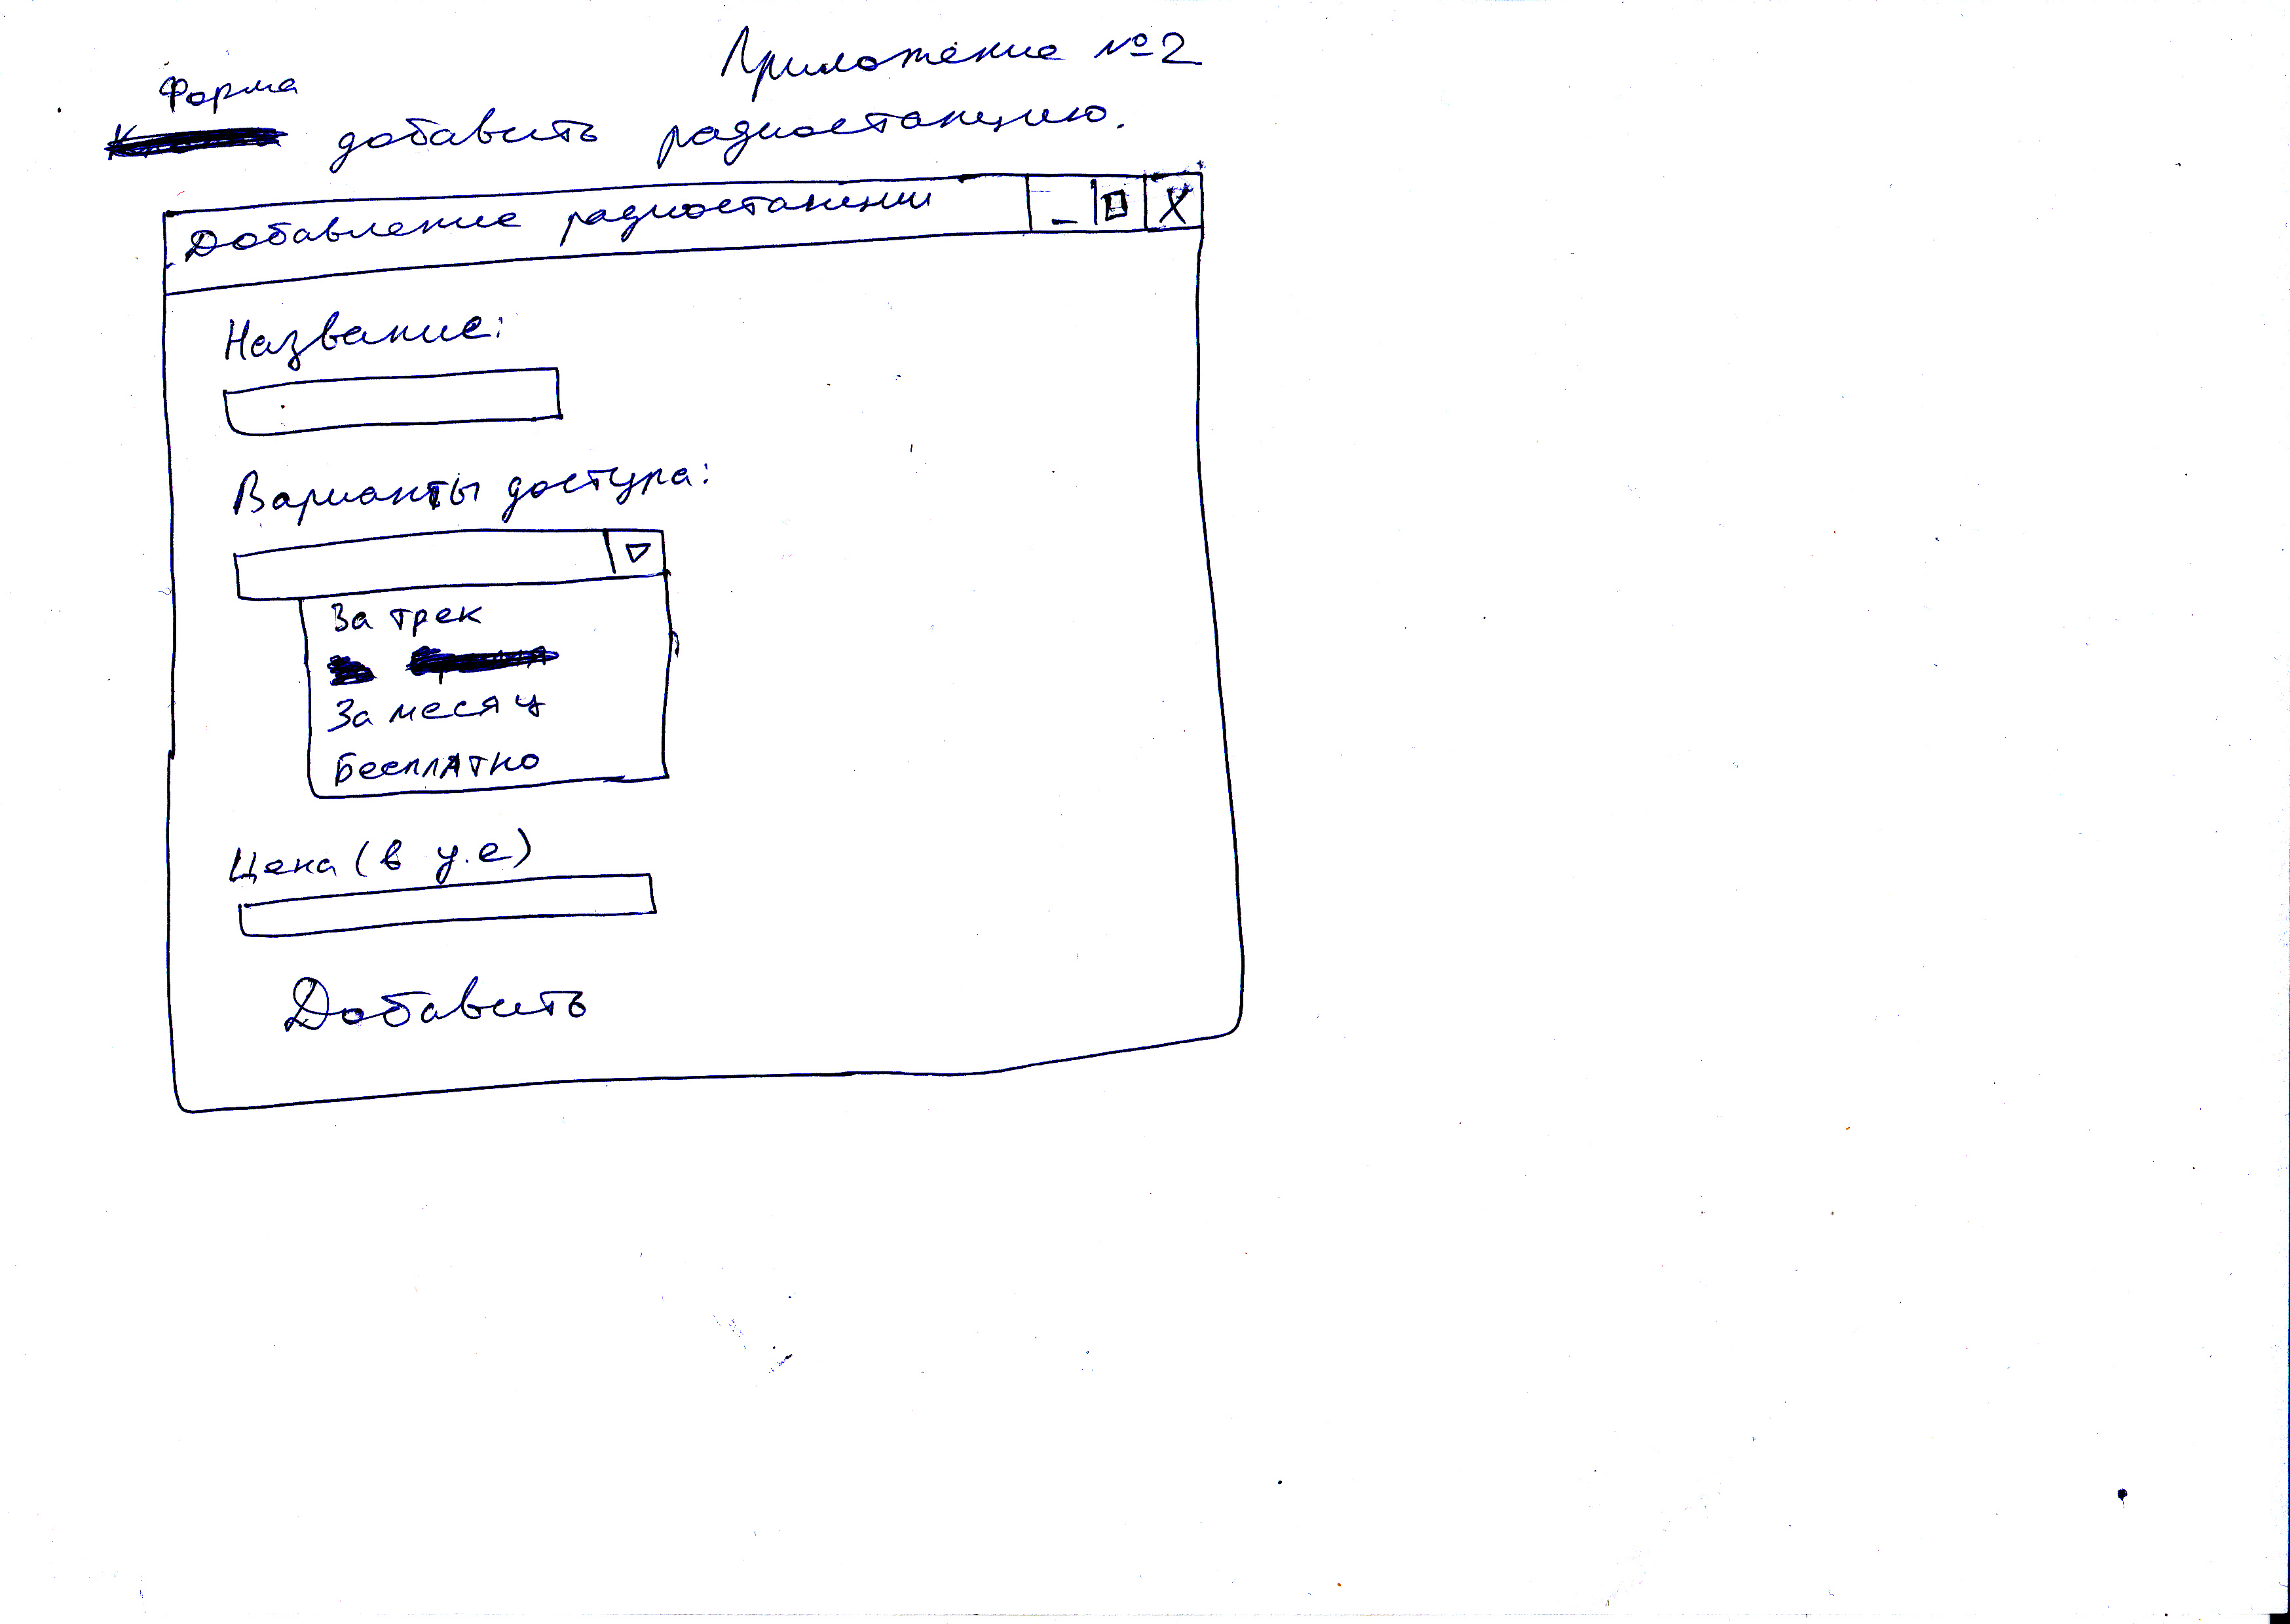 Приложение №2
Форма
добавить радиостанцию.
Добавление радиостанции
Название:
Варианты доступа:
За трек
За месяц
Бесплатно
Цена (в у.е)
Добавить